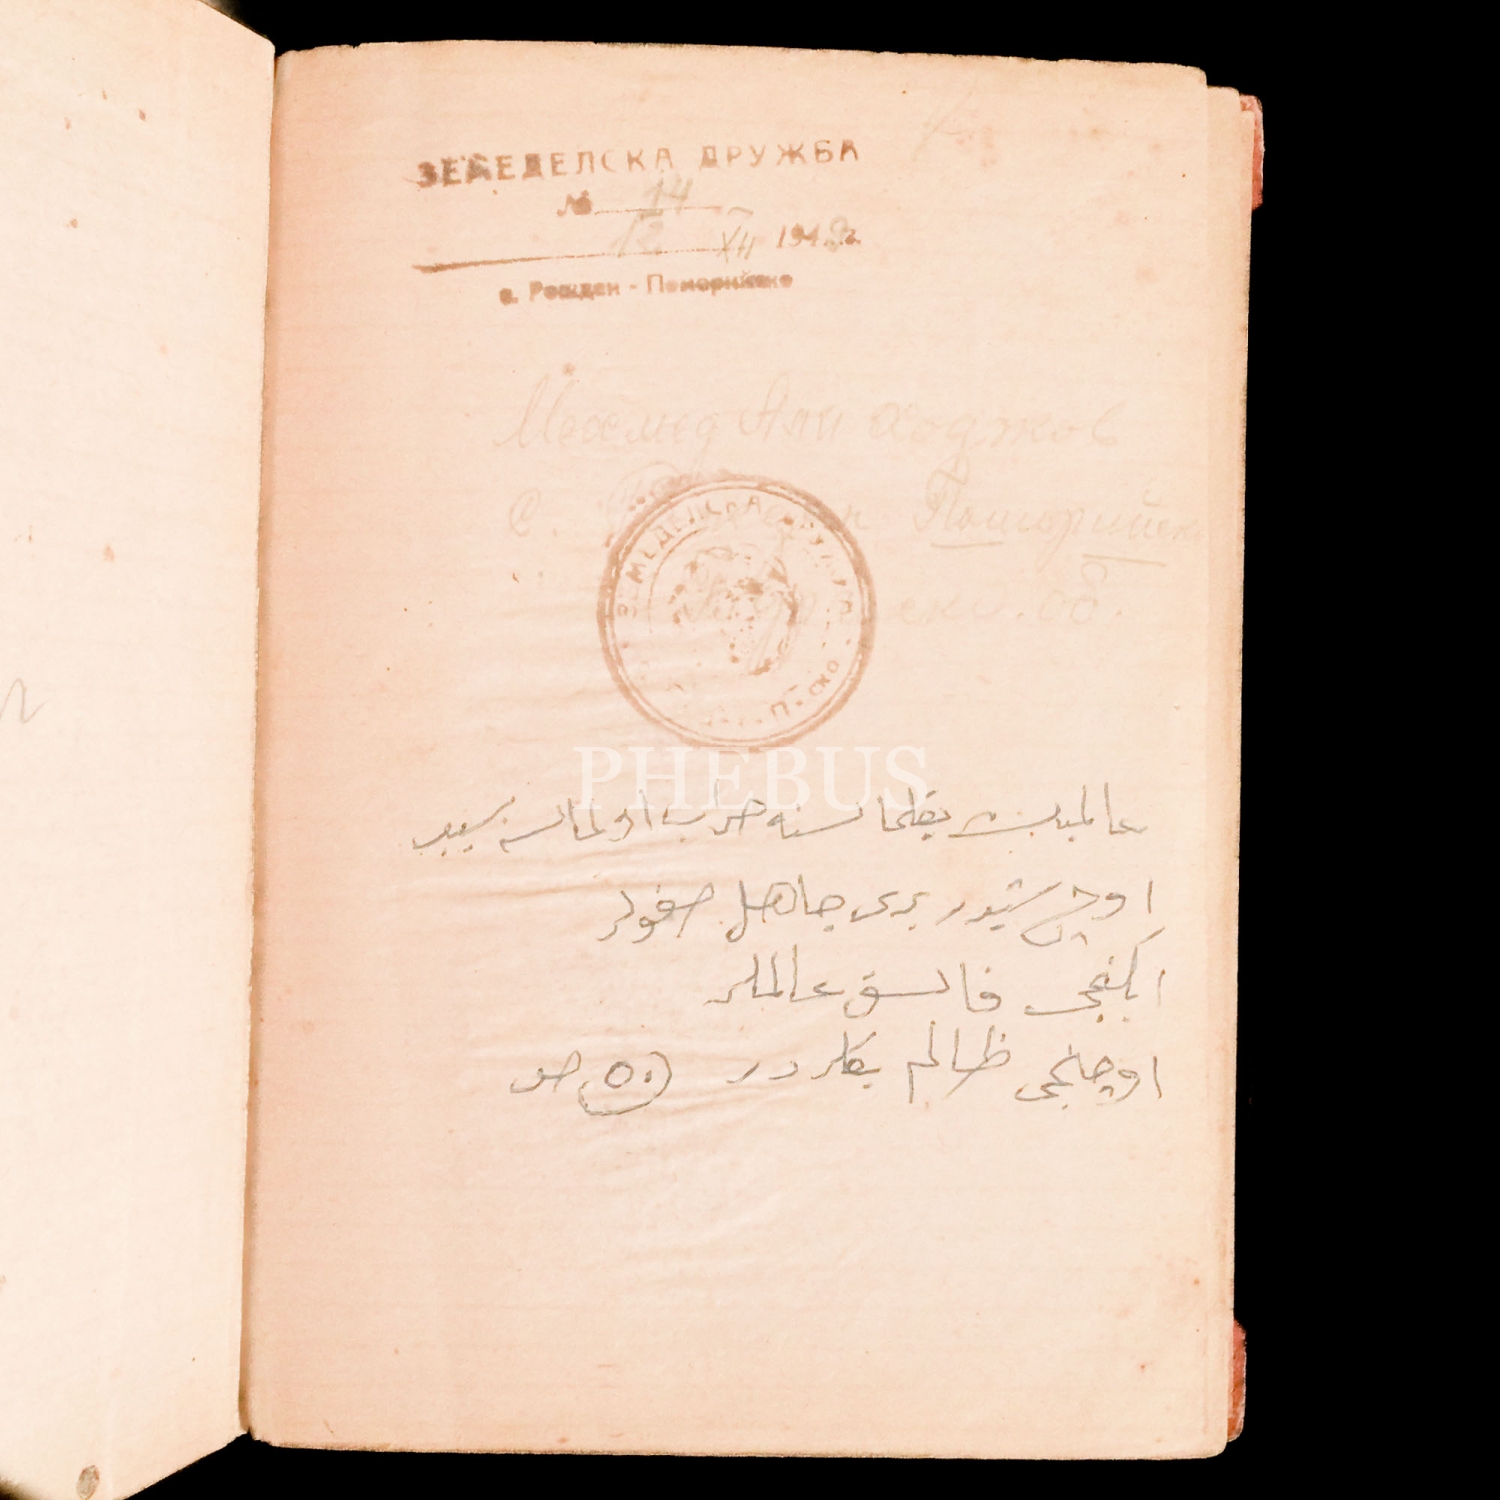 ЗЕМЕДЕЛСКА ДРУЖБА
№ 14
12 XII 1948 г.
с. Рожден - Поморийско
Мехмед Али Ходжов
с. Поморийск
ЗЕМЕДЕЛСКА ДРУЖБА
П-ско
PHEBUS
عالمك يقلماسنه خراب اولماسنه سبب
اوچ شيدر برى جاهل صوفولر
ايكنجى فاسق عالملر
اوچانجى ظالم بكلر در (٥٠) ص